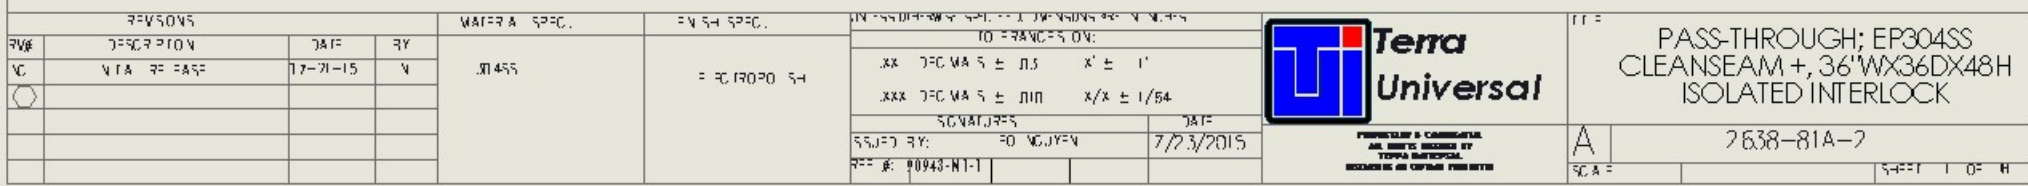 REVISIONS
REV# DESCRIPTION DATE BY
NC INITIAL RELEASE
MATERIAL SPEC.
304SS
FINISH SPEC.
ELECTROPOLISH
UNLESS OTHERWISE SPECIFIED DIMENSIONS ARE IN INCHES
TOLERANCES ON:
.XX DECIMALS ± X° ± 1°
.XXX DECIMALS ± .010 X/X ± 1/64
SIGNATURES DATE
ISSUED BY: NGUYEN 7/23/2015
REF #: 90943-M1-1
Terra
Universal
PROPRIETARY & CONFIDENTIAL
ALL RIGHTS RESERVED BY
TERRA UNIVERSAL.
TITLE
PASS-THROUGH; EP304SS
CLEANSEAM +, 36"WX36DX48H
ISOLATED INTERLOCK
A 2638-81A-2
SCALE SHEET 1 OF